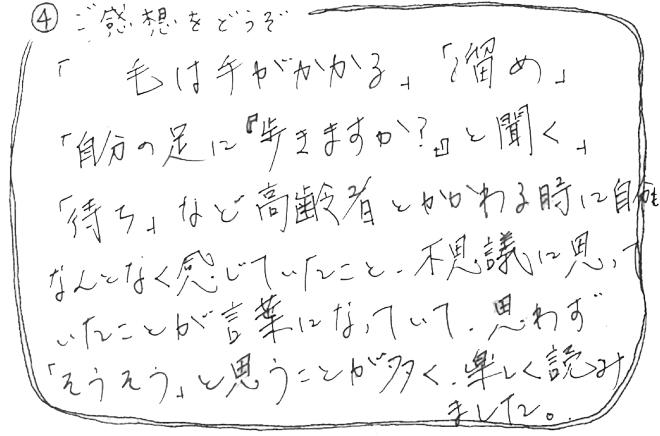 ④ ご感想をどうぞ
「 毛は手がかかる」「溜め」
「自分の足に『歩きますか?』と聞く」
「待ち」など高齢者とかかわる時に自分も
なんとなく感じていたこと、不思議に思って
いたことが言葉になっていて、思わず
「そうそう」と思うことが多く、楽しく読み
ました。